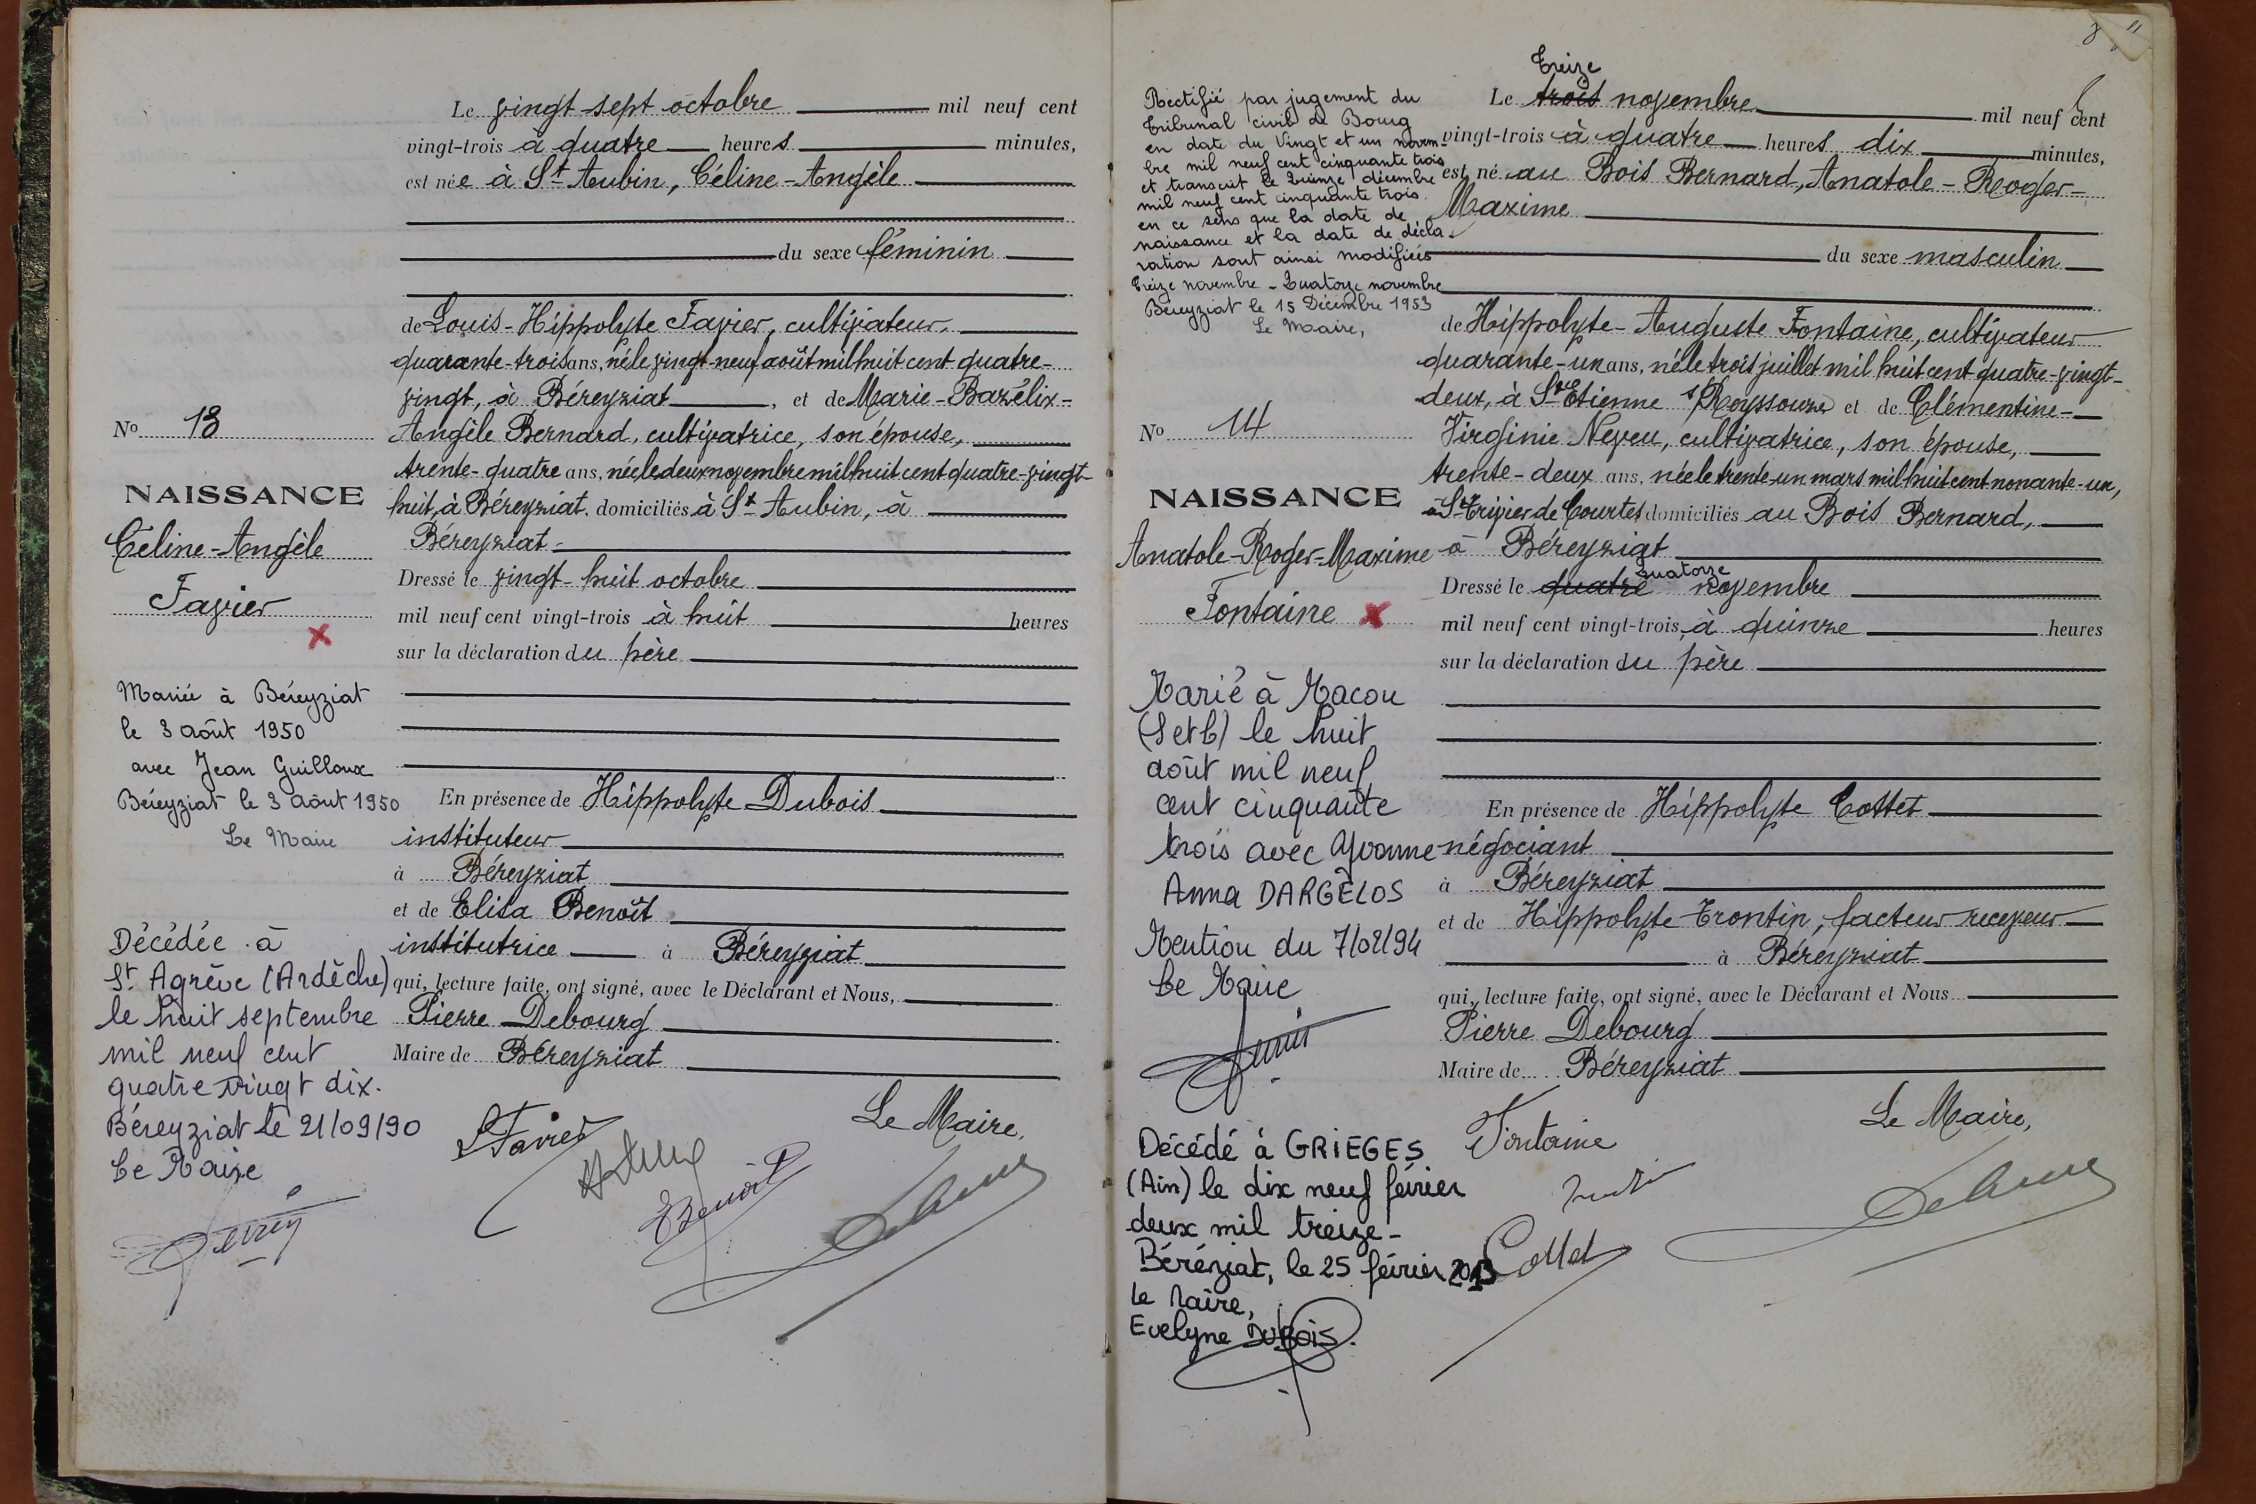 Le vingt-sept octobre mil neuf cent
vingt-trois à quatre heures minutes,
est née à St Aubin, Céline-Angèle
du sexe féminin
de Louis-Hippolyte Favier, cultivateur,
quarante-trois ans, né le vingt-neuf août mil huit cent quatre-
vingt, à Béreyziat, et de Marie-Bazélix-
Angèle Bernard, cultivatrice, son épouse,
trente-quatre ans, née le deux novembre mil huit cent quatre-vingt
huit, à Béreyziat, domiciliés à St Aubin, à
Béreyziat
Dressé le vingt-huit octobre
mil neuf cent vingt-trois à huit heures
sur la déclaration du père
En présence de Hippolyte Dubois
instituteur
à Béreyziat
et de Elisa Benoît
institutrice à Béreyziat
qui, lecture faite, ont signé, avec le Déclarant et Nous,
Pierre Debourg
Maire de Béreyziat
Le Maire,
LFavier
EBenoit
No 13
NAISSANCE
Céline-Angèle
Favier
Mariée à Béreyziat
le 3 août 1950
avec Jean Guilloux
Béreyziat le 3 août 1950
Le Maire
Décédée à
St Agrève (Ardèche)
le huit septembre
mil neuf cent
quatre vingt dix.
Béreyziat le 21/09/90
Le Maire
Rectifié par jugement du
Tribunal civil de Bourg
en date du Vingt et un novem-
bre mil neuf cent cinquante trois
et transcrit le Quinze décembre
mil neuf cent cinquante trois
en ce sens que la date de
naissance et la date de décla-
ration sont ainsi modifiées
Treize novembre - Quatorze novembre
Béreyziat le 15 Décembre 1953
Le Maire,
No 14
NAISSANCE
Anatole-Roger-Maxime
Fontaine
Marié à Macon
(S et L) le huit
août mil neuf
cent cinquante
trois avec Yvonne
Anna DARGELOS
Mention du 7/02/94
Le Maire
Décédé à GRIEGES
(Ain) le dix neuf février
deux mil treize-
Béréziat, le 25 février 2013
Le Maire,
Evelyne DUBOIS.
Treize
Le trois novembre mil neuf cent
vingt-trois à quatre heures dix minutes,
est né au Bois Bernard, Anatole-Roger-
Maxime
du sexe masculin
de Hippolyte-Auguste Fontaine, cultivateur
quarante-un ans, né le trois juillet mil huit cent quatre-vingt-
deux, à St Etienne s/Reyssouze et de Clémentine-
Virginie Neveu, cultivatrice, son épouse,
trente-deux ans, née le trente-un mars mil huit cent nonante-un,
à St Trivier de Courtes domiciliés au Bois Bernard,
à Béreyziat
quatorze
Dressé le quatre novembre
mil neuf cent vingt-trois, à quinze heures
sur la déclaration du père
En présence de Hippolyte Cottet
négociant
à Béreyziat
et de Hippolyte Trontin, facteur receveur
à Béreyziat
qui, lecture faite, ont signé, avec le Déclarant et Nous
Pierre Debourg
Maire de Béreyziat
Le Maire,
Fontaine
Cottet